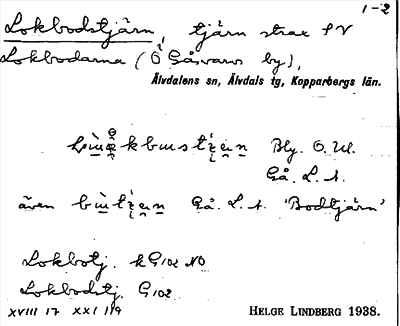 1-2
Lokbodstjärn, tjärn strax SV
Lokbodarna (Ö Gåsvarv by),
Älvdalens sn, Älvdals tg, Kopparbergs län.
Bly. O. M.
Gå. L. A.
även Gå. L. A. 'Bodtjärn'
Lokbotj. k G102 NO
Lokbodstj. G102
XVIII 17 XXI 119
HELGE LINDBERG 1938.